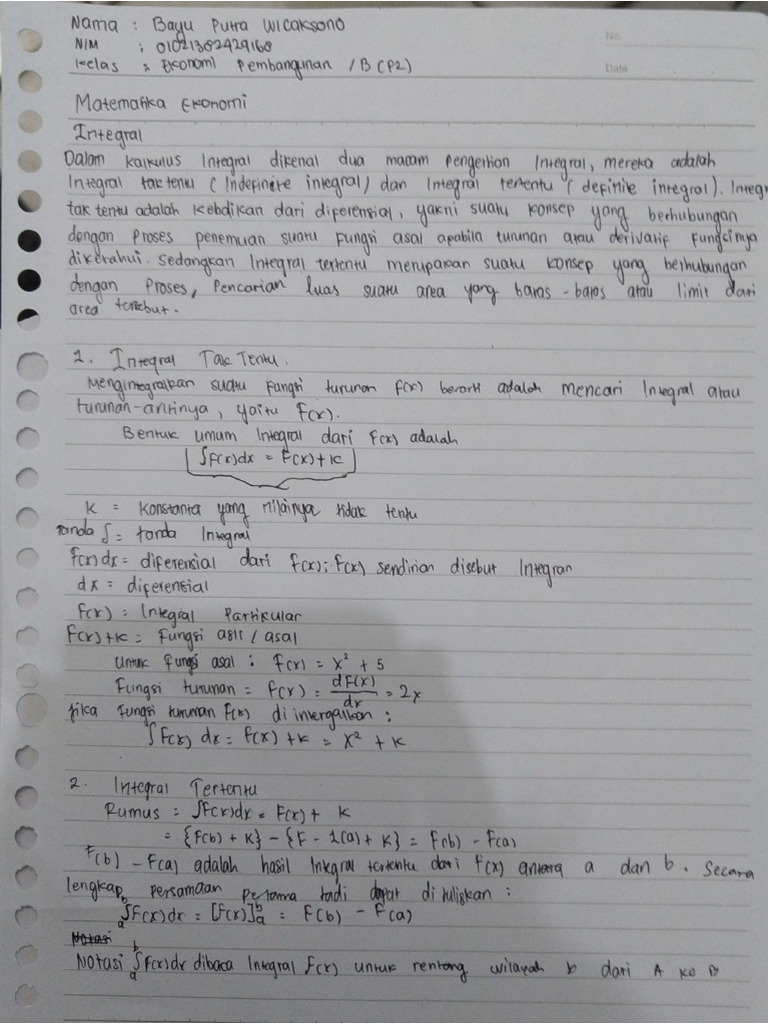 Nama : Bayu Putra Wicaksono
No.
NIM : 01021382429168
Kelas : Ekonomi Pembangunan / B (P2)
Date
Matematika Ekonomi
Integral
Dalam kalkulus Integral dikenal dua macam pengertian Integral, mereka adalah
Integral tak tentu (Indefinite integral) dan Integral tertentu (definite integral). Integr
tak tentu adalah kebalikan dari diferensial, yakni suatu konsep yang berhubungan
dengan Proses penemuan suatu fungsi asal apabila turunan atau derivatif fungsinya
diketahui. Sedangkan Integral tertentu merupakan suatu konsep yang berhubungan
dengan Proses, Pencarian luas suatu area yang batas-batas atau limit dari
area tersebut.
1. Integral Tak Tentu.
Mengintegralkan suatu fungsi turunan f(x) berarti adalah mencari Integral atau
turunan-antinya, yaitu F(x).
Bentuk umum Integral dari F(x) adalah
∫F(x)dx = F(x)+k
k = konstanta yang nilainya tidak tentu
Tanda ∫ = tanda Integral
f(x)dx = diferensial dari f(x); f(x) sendirian disebut Integran
dx = diferensial
F(x) = Integral Partikular
F(x)+k = Fungsi asli / asal
Untuk fungsi asal : F(x) = x² + 5
Fungsi turunan = f(x) = dF(x)/dx = 2x
Jika fungsi turunan f(x) di intergalkan :
∫F(x) dx = F(x) + k = x² + k
2. Integral Tertentu
Rumus = ∫F(x)dx = F(x) + k
= {F(b) + k} - {F - 1(a) + k} = F(b) - F(a)
F(b) - F(a) adalah hasil Integral tertentu dari f(x) antara a dan b. Secara
lengkap persamaan pertama tadi dapat dituliskan :
ₐ∫ᵇF(x)dx = [F(x)]ₐᵇ = F(b) - F(a)
Notasi
Notasi ₐ∫ᵇ F(x)dx dibaca Integral F(x) untuk rentang wilayah x dari A ke B